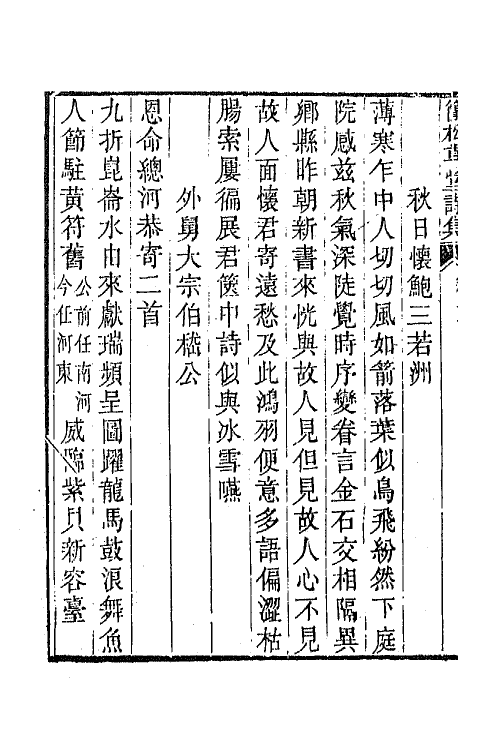 秋日懷鮑三若洲
薄寒乍中人切切風如箭落葉似鳥飛紛然下庭
院感茲秋氣深陡覺時序變眷言金石交相隔異
鄉縣昨朝新書來恍與故人見但見故人心不見
故人面懷君寄遠愁及此鴻羽便意多語偏澀枯
腸索屢徧展君篋中詩似與冰雪嚥
外舅大宗伯嵇公
恩命總河恭寄二首
九折崑崙水由來獻瑞頻呈圖躍龍馬鼓浪舞魚
人節駐黃符舊公前任南河今任河東威臨紫貝新容臺